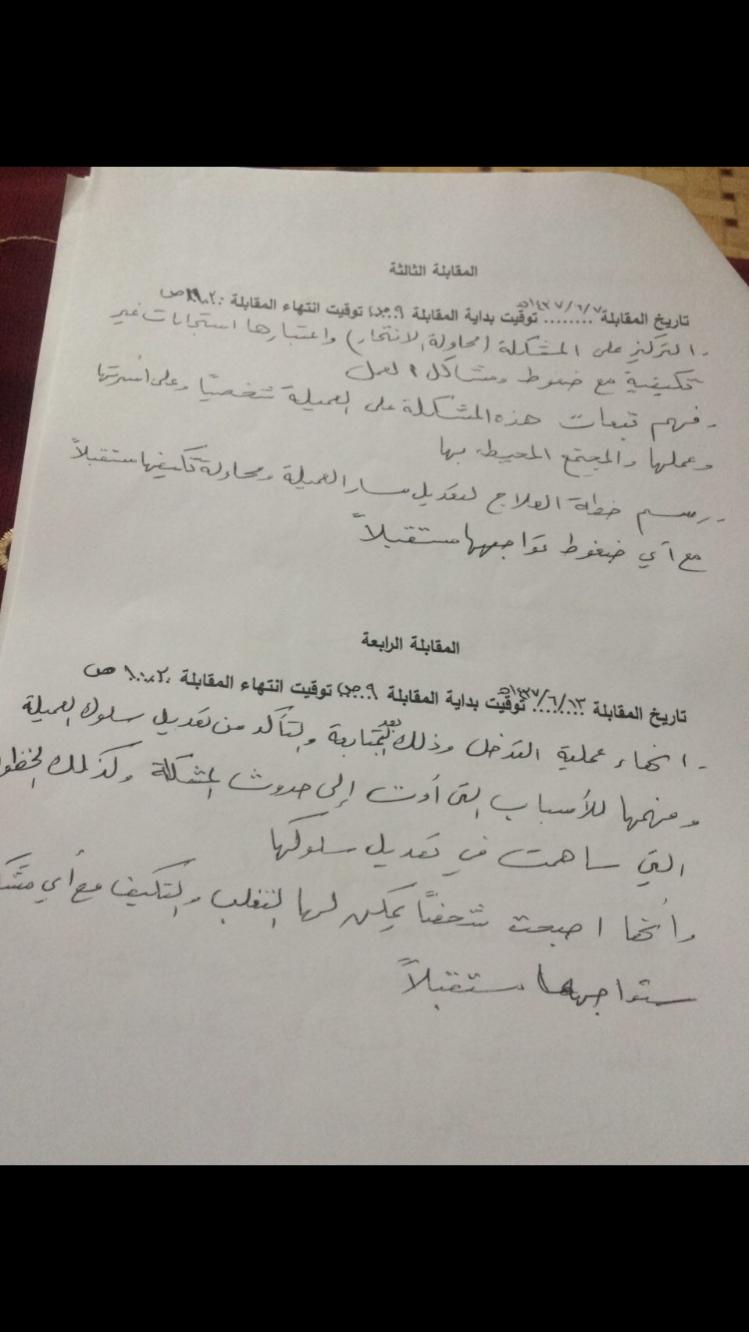 المقابلة الثالثة
تاريخ المقابلة ١٤٣٧/٦/٧هـ توقيت بداية المقابلة ٩ ص توقيت انتهاء المقابلة ص
- التركيز على المشكلة (محاولة الانتحار) واعتبارها استجابات غير
تكيفية مع ضغوط ومشاكل العمل
- فهم تبعات هذه المشكلة على العميلة شخصيًا وعلى أسرتها
وعملها والمجتمع المحيط بها
- رسم خطة العلاج لتعديل مسار العميلة ومحاولة تكيفها مستقبلاً
مع أي ضغوط تواجهها مستقبلاً
المقابلة الرابعة
تاريخ المقابلة ١٤٣٧/٦/١٣هـ توقيت بداية المقابلة ٩ ص توقيت انتهاء المقابلة ١٠،٢٠ ص
- انهاء عملية التدخل وذلك بعد المتابعة والتأكد من تعديل سلوك العميلة
وفهمها للأسباب التي أدت إلى حدوث المشكلة وكذلك
التي ساهمت في تعديل سلوكها
وأنها اصبحت شخصًا يمكن لها التغلب والتكيف مع أي
ستواجهها مستقبلاً